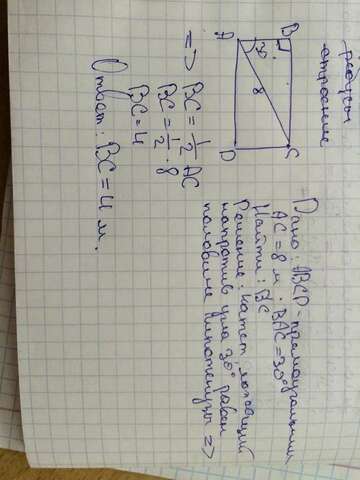 A
B
30°
8
D
C
Дано: ABCD-прямоугольник
AC=8 м. BAC=30°
Найти: BC
Решение: катет лежащий
напротив угла 30° равен
половине гипотенузы =>
=> BC = 1/2 AC
BC = 1/2 · 8
BC = 4
Ответ: BC = 4 м.